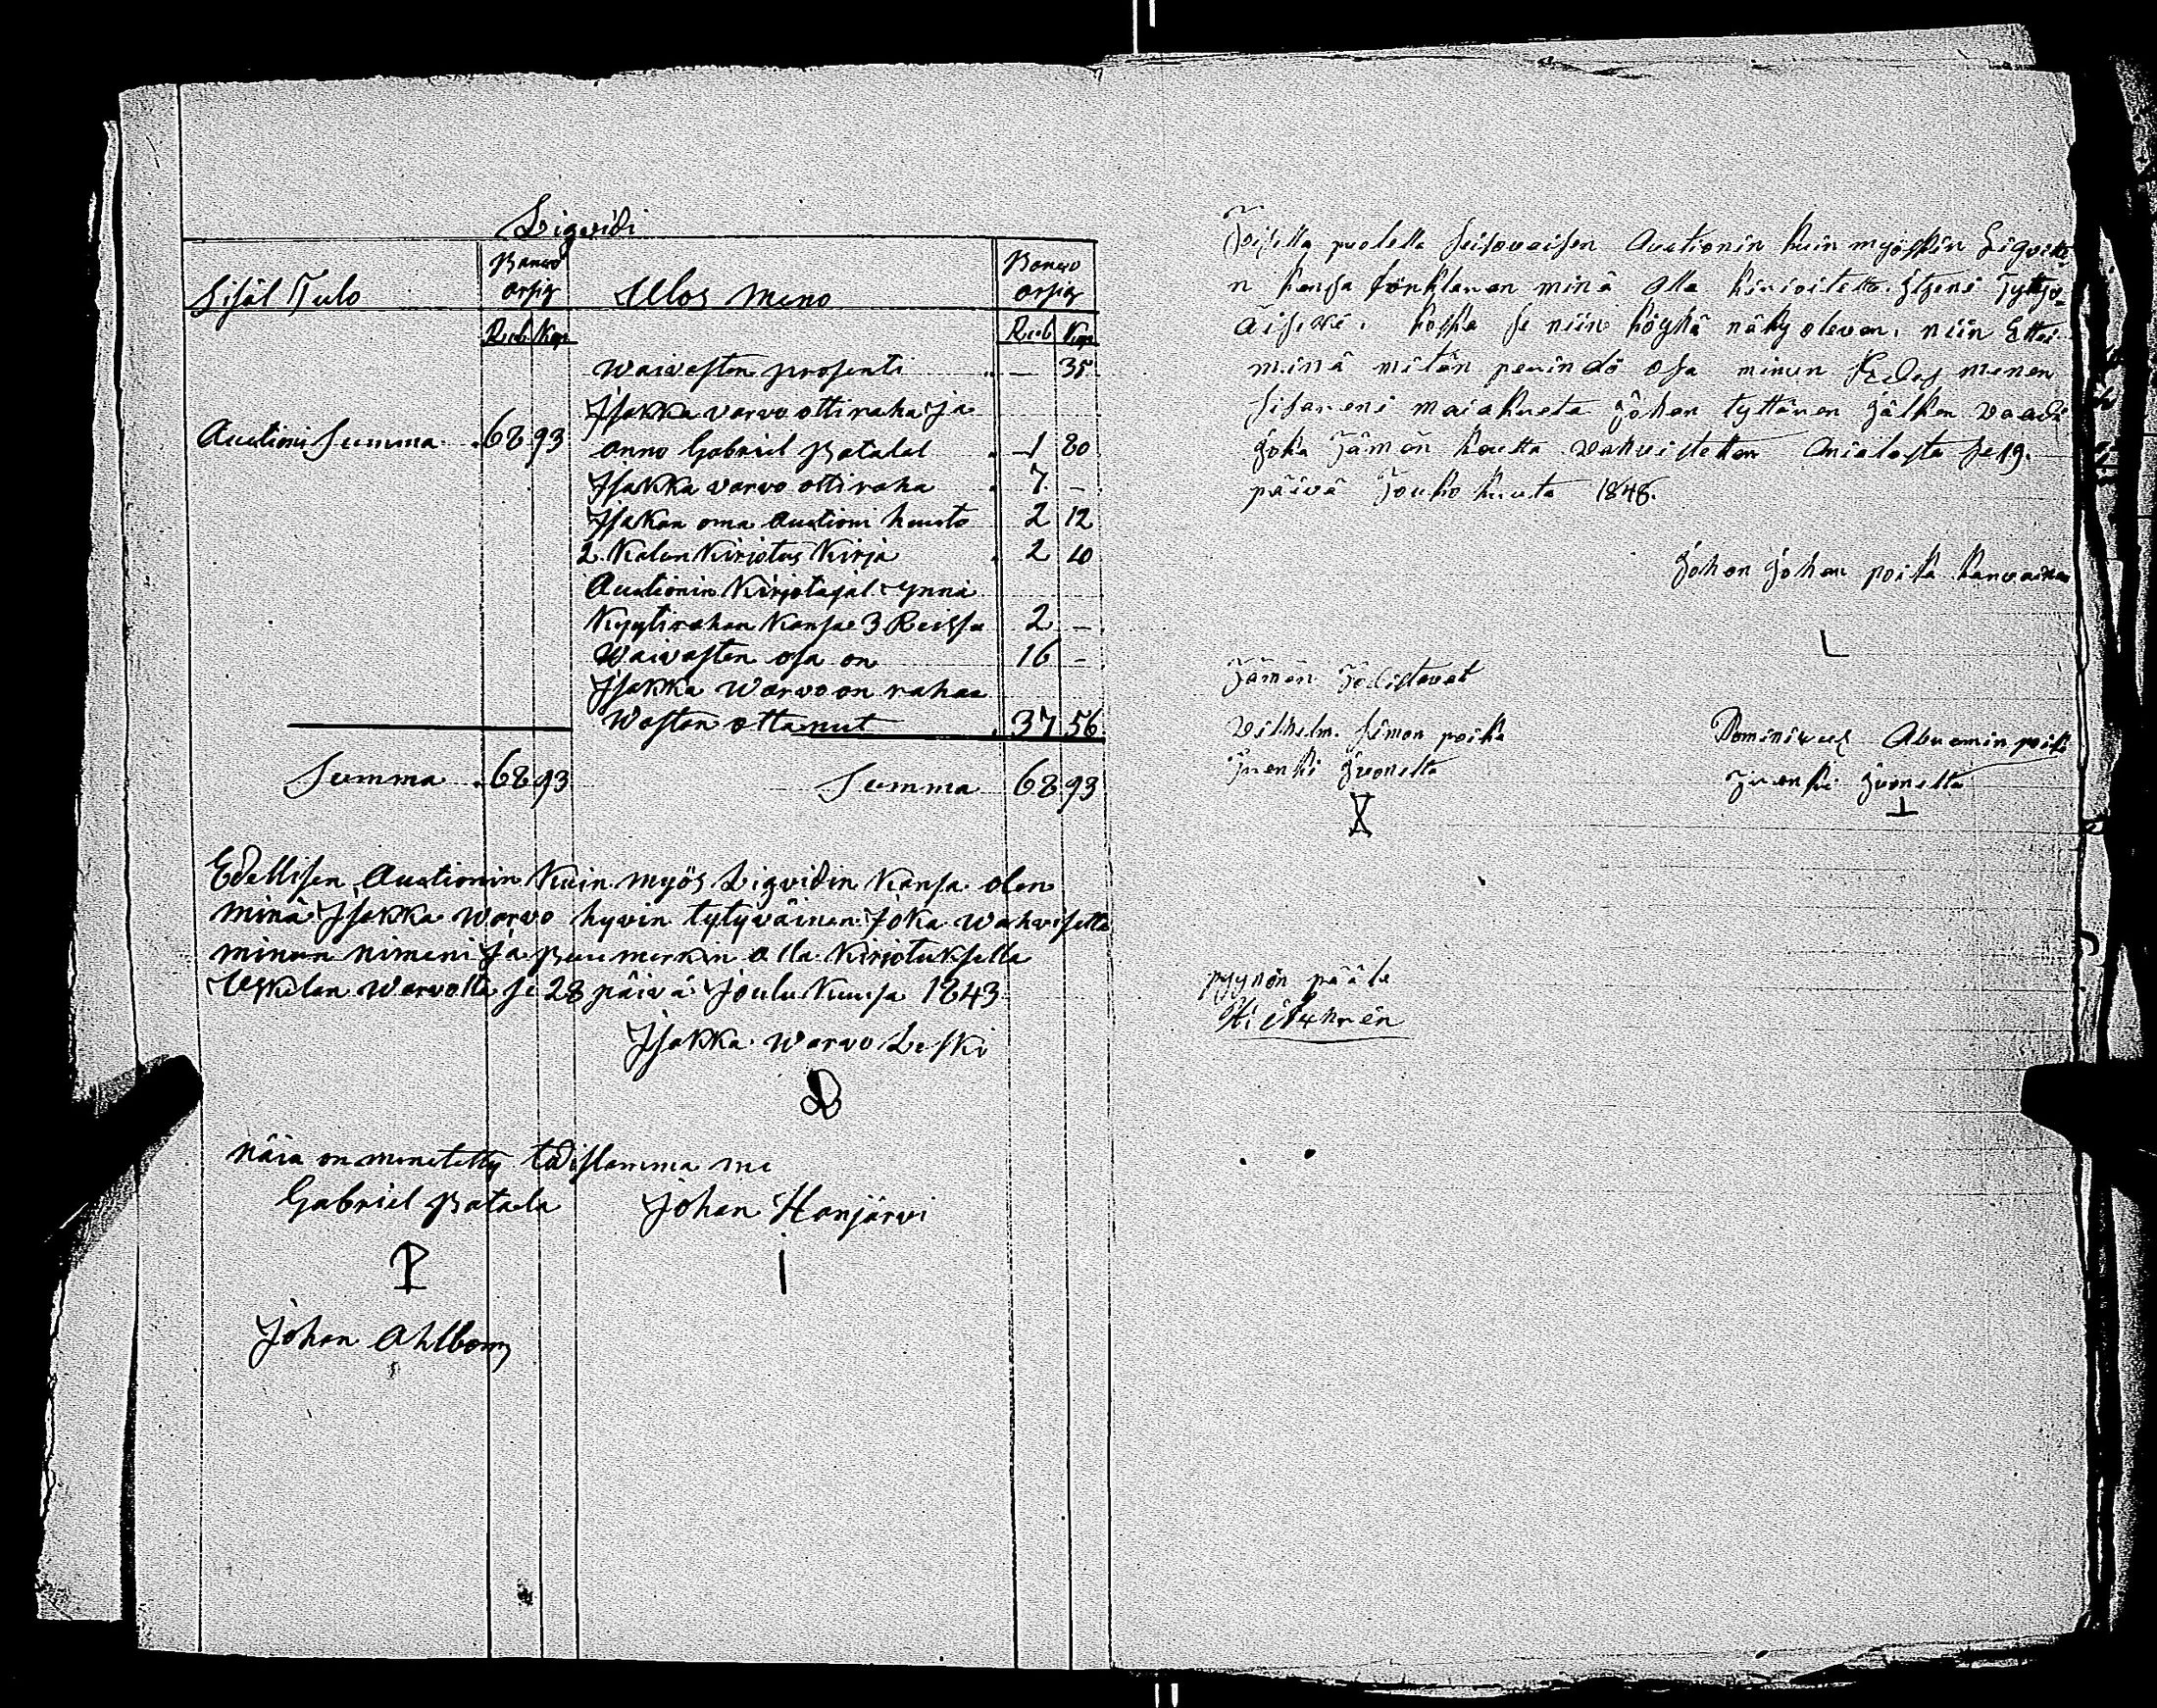 Ligvidi
Sisäl Tulo Banco Ulos Meno Banco
Rub Kop Rub Kop
Waivasten prosenti — 35
Isakka varvo otti raha Ja
Auctioni Summa 68 93 anno Gabriel Patalal 1 80
Isakka varvo otti raha 7 —
Isakan oma Auctioni huuto 2 12
2 Kalun Kirjotus Kirja 2 10
Auctionin Kirjotajal Ynnä
Kyytirahan Kansa 3 Reissa 2 —
Waivasten osa on 16 —
Isakka Warvo on rahaa
Wasten ottanut 37 56
Summa 68 93 Summa 68 93
Edellisen Auctionin Kuin myös Ligvidin Kansa olen
minä Isakka Warvo hyvin tytyväinen Joka Wahvisetta
minun nimeni Ja Puumerkin alla Kirjotuksella
Uskelan Warvolla se 28 päivä Joulu Kuusa 1843
Isakka Warvo Leski
näin on menetetty todistamma me
Gabriel Patala Johan Hanjärvi
Johan Ahlbom
Toisella puolella seisovaisen Auctionin kuin myöskin Ligvite
n kansa minä alla kirioitettu Itzeni Tytyvä
äisexi. koska se niin köyhä näky olevan. niin Ettei
minä mitän perindö osa minun menen
sisareni maiahueta Johan tyttären Jälken vaadi
Joka Tämän kautta vahvistettan Anialasta se 19.
päivä Touko kuuta 1848.
Johan Johan poika
Tämän Todistavat
Vilhelm Simon poika Dominicus poika
Trenki Juonetta Trenki Juonetta
pyynön pääle